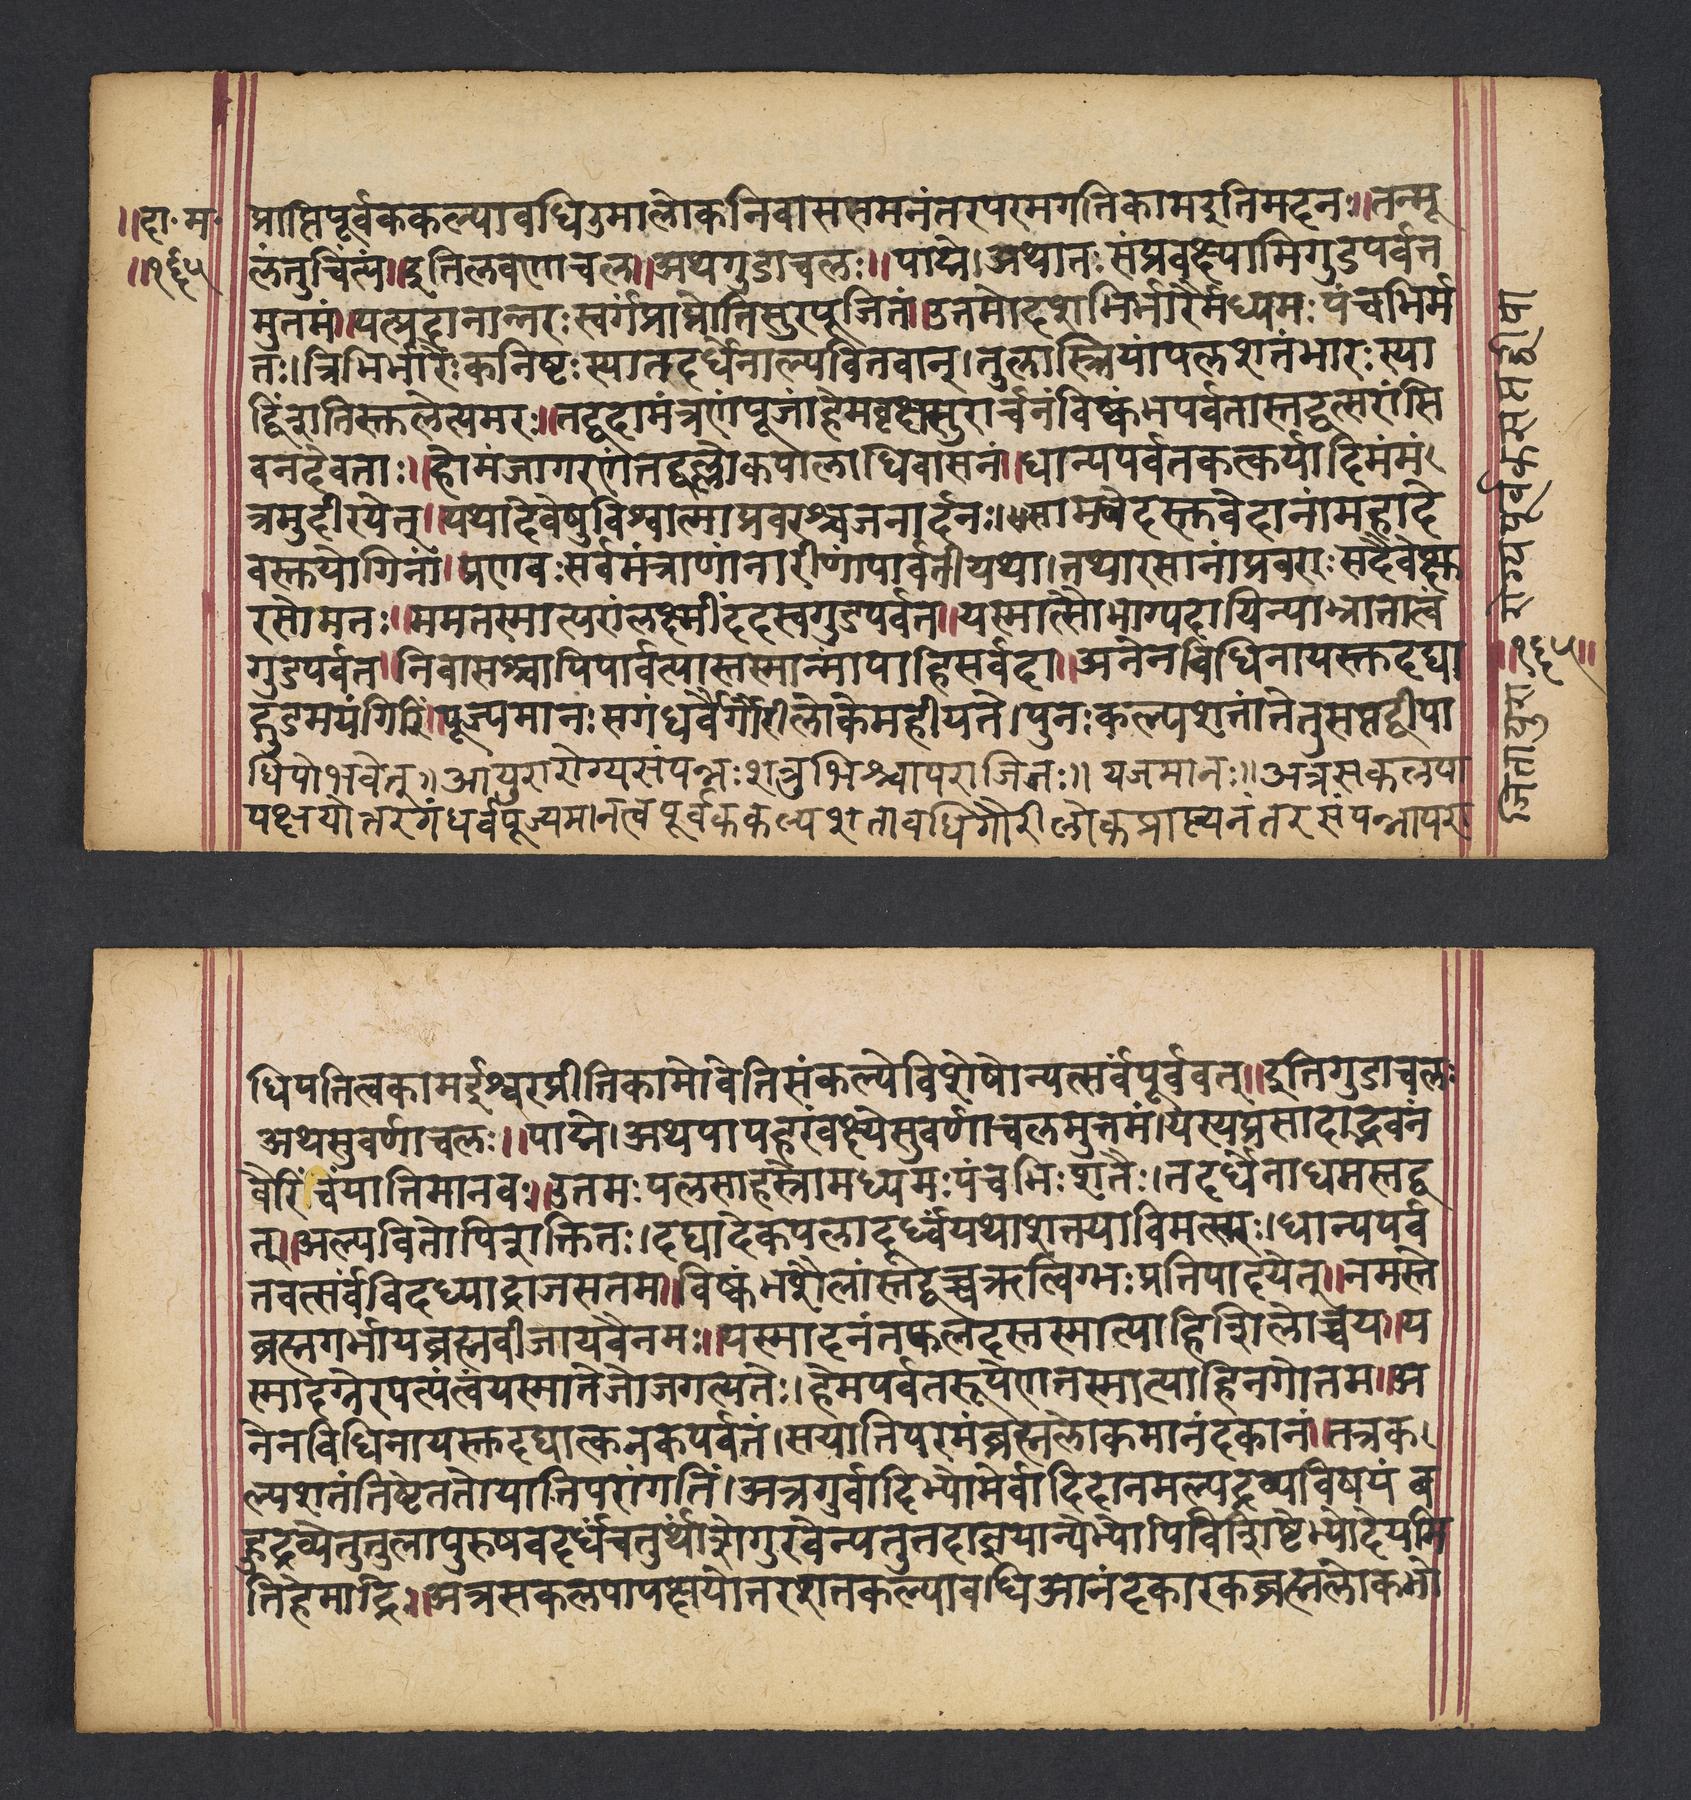 ॥दा॰म॰
॥१६५
प्राप्तिपूर्वककल्पावधिउमालोकनिवाससमनंतरपरमगतिकामइतिमदनः॥तन्मू
लंतुचिंत्यं॥इतिलवणाचल॥अथगुडाचलः॥पाद्मे।अथातःसंप्रवक्ष्यामिगुडपर्वत
मुत्तमं॥यत्प्रदानान्नरःस्वर्गंप्राप्नोतिसुरपूजितं॥उत्तमोदशभिर्भारैर्मध्यमःपंचभिर्म
तः।त्रिभिर्भारैःकनिष्टःस्यातदर्धेनाल्पवितवान्।तुलास्त्रियांपलशतंभारःस्या
द्विंशतिस्तुलेत्यमरः॥तद्वदामंत्रणंपूजांहेमवृक्षसुरार्चनंविष्कंभपर्वतास्तद्वत्सरांसि
वनदेवताः॥होमंजागरणंतद्वल्लोकपालाधिवासनं॥धान्यपर्वतकत्कर्यादिमंमं
त्रमुदीरयेत्॥यथादेवेषुविश्वात्माप्रवरश्चजनार्दनः।सामवेदस्तुवेदानांमहादे
वस्तुयोगिनां॥प्रणवःसर्वमंत्राणांनारीणांपार्वतीयथा।तथारसानांप्रवरःसदैवेक्षु
रसोमतः॥ममतस्मात्परांलक्ष्मींददस्वगुडपर्वत॥यस्मात्सौभाग्यदायिन्याभ्रातात्वं
गुडपर्वत॥निवासश्चापिपार्वत्यास्तस्मान्मांपाहिसर्वदा॥अनेनविधिनायस्तुदद्या
द्गुडमयंगिरिं॥पूज्यमानःसगंधर्वैर्गौरीलोकेमहीयते।पुनःकल्पशतांतेतुसप्तद्वीपा
धिपोभवेत्॥आयुरारोग्यसंपन्नःशत्रुभिश्चापराजितः॥यजमानः॥अत्रसकलपा
पक्षयोत्तरगंधर्वपूज्यमानत्वपूर्वककल्पशतावधिगौरीलोकप्राप्त्यनंतरसंपन्नापरा
॥१६५॥
धिपतित्वकामईश्वरप्रीतिकामोवेतिसंकल्पेविशेषोन्यत्सर्वंपूर्ववत्॥इतिगुडाचलः
अथसुवर्णाचलः॥पाद्मे।अथपापहरंवक्ष्येसुवर्णाचलमुत्तमं।यस्यप्रसादाद्भवनं
वैरिंचंयातिमानवः॥उतमःपलसाहस्रोमध्यमःपंचभिःशतैः।तदर्धेनाधमस्तद्व
त्॥अल्पवितोपिशक्तितः।दद्यादेकपलादूर्ध्वंयथाशत्त्याविमत्सरः।धान्यपर्व
तवत्सर्वंविदध्याद्राजसतम॥विष्कंभशैलांस्तद्वच्चऋत्विग्भःप्रतिपादयेत्॥नमस्ते
ब्रह्मगर्भायब्रह्मबीजायवैनमः॥यस्मादनंतफलदस्तस्मात्पाहिशिलोच्चय॥य
स्मादग्नेरपत्यंत्वंयस्मातेजोजगत्पतेः।हेमपर्वतरूपेणतस्मात्पाहिनगोत्तम॥अ
नेनविधिनायस्तुदद्यात्कनकपर्वतं।सयातिपरमंब्रह्मलोकमानंदकानं॥तत्रक
ल्पशतंतिष्टेततोयातिपरांगतिं।अत्रगुर्वादिभ्योमेर्वादिदानमल्पद्रव्यविषयंब
हुद्रव्येतुतुलापुरुषवदर्धंचतुर्थांशोगुरवेन्यतुतदाज्ञयान्येभ्योपिविशिष्टेभ्योदेयमि
तिहेमाद्रिः॥अत्रसकलपापक्षयोतरशतकल्पावधिआनंदकारकब्रह्मलोकभो